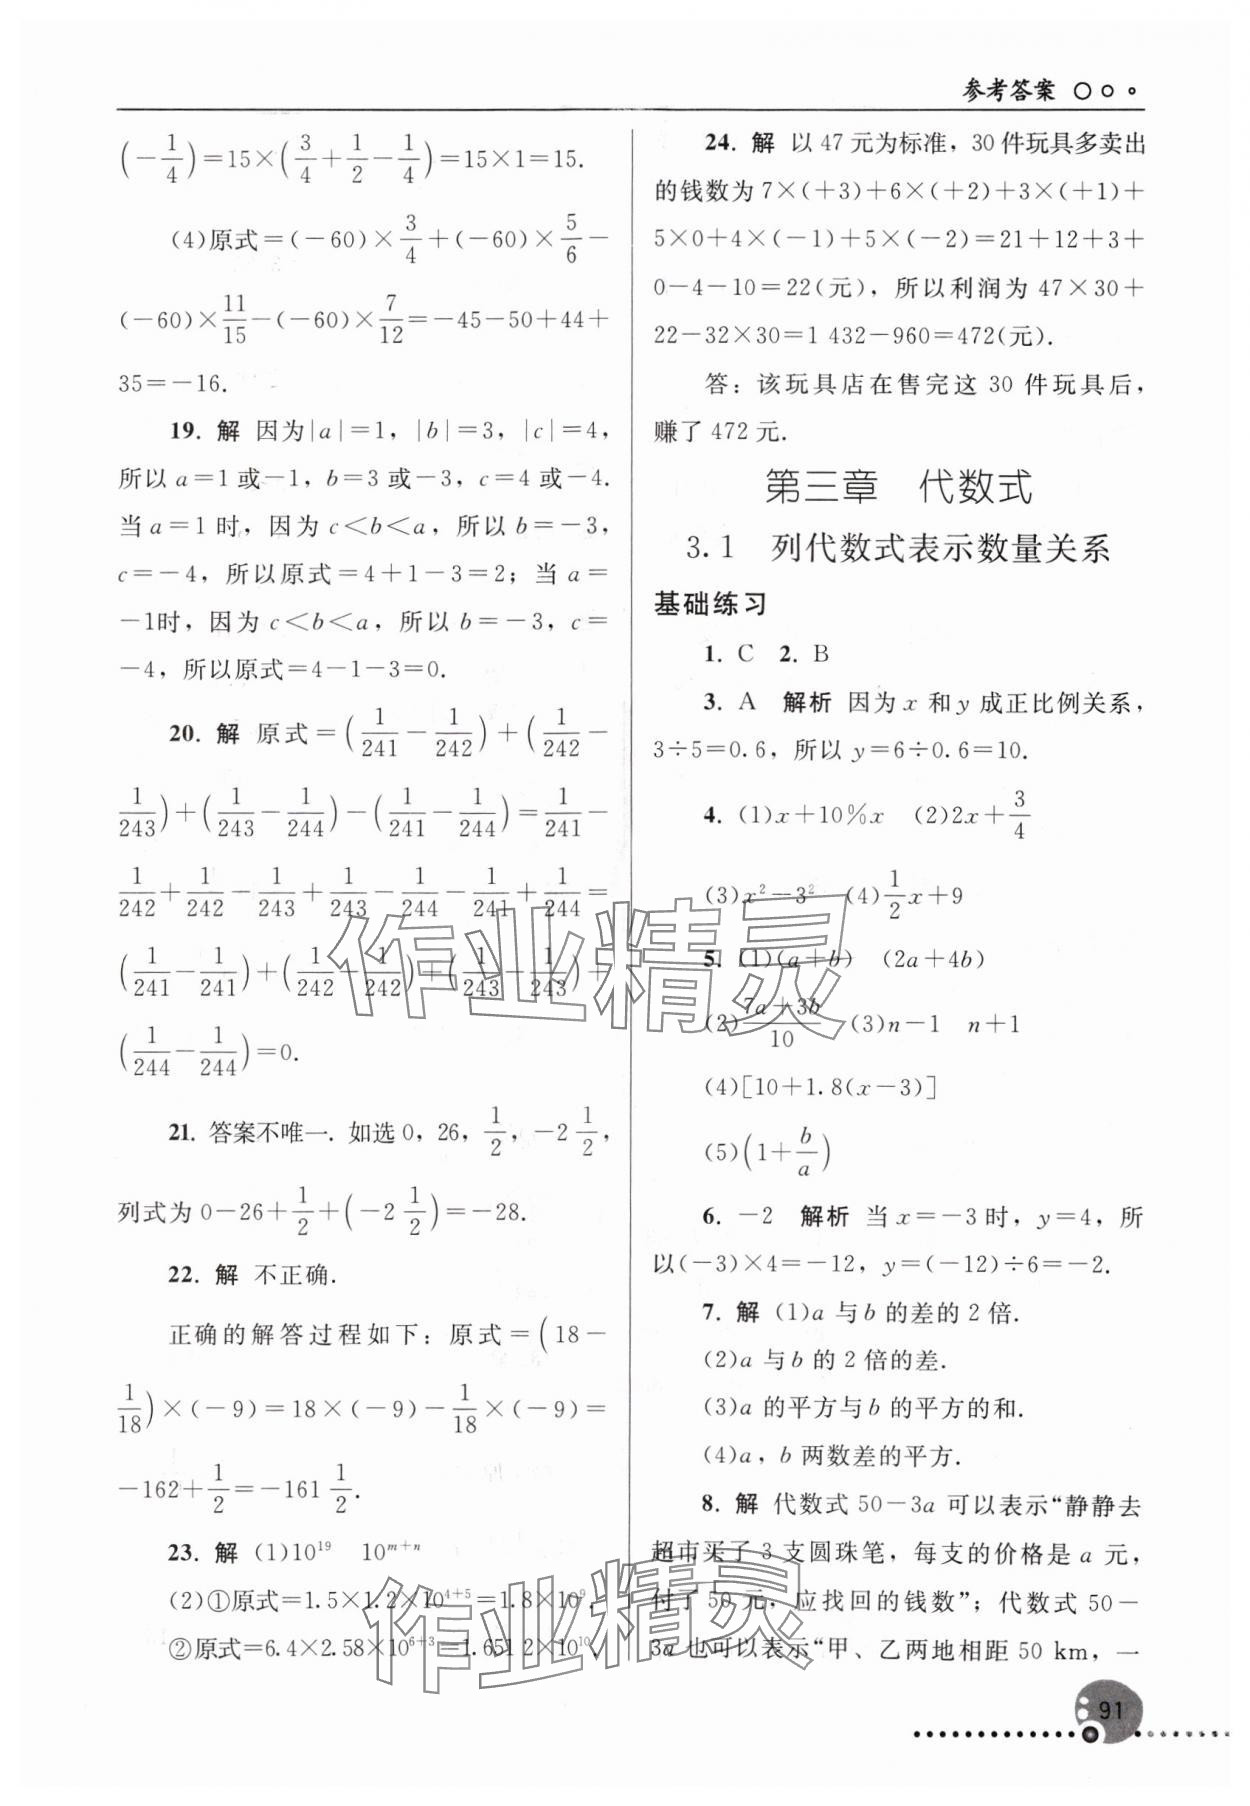 参考答案
(-1/4)=15×(3/4+1/2-1/4)=15×1=15.
(4)原式=(-60)×3/4+(-60)×5/6-
(-60)×11/15-(-60)×7/12=-45-50+44+
35=-16.
19. 解 因为|a|=1, |b|=3, |c|=4,
所以a=1或-1, b=3或-3, c=4或-4.
当a=1时, 因为c<b<a, 所以b=-3,
c=-4, 所以原式=4+1-3=2; 当a=
-1时, 因为c<b<a, 所以b=-3, c=
-4, 所以原式=4-1-3=0.
20. 解 原式=(1/241-1/242)+(1/242-
1/243)+(1/243-1/244)-(1/241-1/244)=1/241-
1/242+1/242-1/243+1/243-1/244-1/241+1/244=
(1/241-1/241)+(1/242-1/242)+(1/243-1/243)+
(1/244-1/244)=0.
21. 答案不唯一. 如选0, 26, 1/2, -2 1/2,
列式为0-26+1/2+(-2 1/2)=-28.
22. 解 不正确.
正确的解答过程如下: 原式=(18-
1/18)×(-9)=18×(-9)-1/18×(-9)=
-162+1/2=-161 1/2.
23. 解 (1)10¹⁹ 10ᵐ⁺ⁿ
(2)①原式=1.5×1.2×10⁴⁺⁵=1.8×10⁹.
②原式=6.4×2.58×10⁶⁺³=1.651 2×10¹⁰.
24. 解 以47元为标准, 30件玩具多卖出
的钱数为7×(+3)+6×(+2)+3×(+1)+
5×0+4×(-1)+5×(-2)=21+12+3+
0-4-10=22(元), 所以利润为47×30+
22-32×30=1 432-960=472(元).
答: 该玩具店在售完这30件玩具后,
赚了472元.
第三章 代数式
3.1 列代数式表示数量关系
基础练习
1. C 2. B
3. A 解析 因为x和y成正比例关系,
3÷5=0.6, 所以y=6÷0.6=10.
4. (1)x+10%x (2)2x+3/4
(3)x²-3² (4)1/2x+9
5. (1)(a+b) (2a+4b)
(2)(7a+3b)/10 (3)n-1 n+1
(4)[10+1.8(x-3)]
(5)(1+b/a)
6. -2 解析 当x=-3时, y=4, 所
以(-3)×4=-12, y=(-12)÷6=-2.
7. 解 (1)a与b的差的2倍.
(2)a与b的2倍的差.
(3)a的平方与b的平方的和.
(4)a, b两数差的平方.
8. 解 代数式50-3a可以表示“静静去
超市买了3支圆珠笔, 每支的价格是a元,
付了50元, 应找回的钱数”; 代数式50-
3a也可以表示“甲、乙两地相距50 km, 一
91
作业精灵
作业精灵